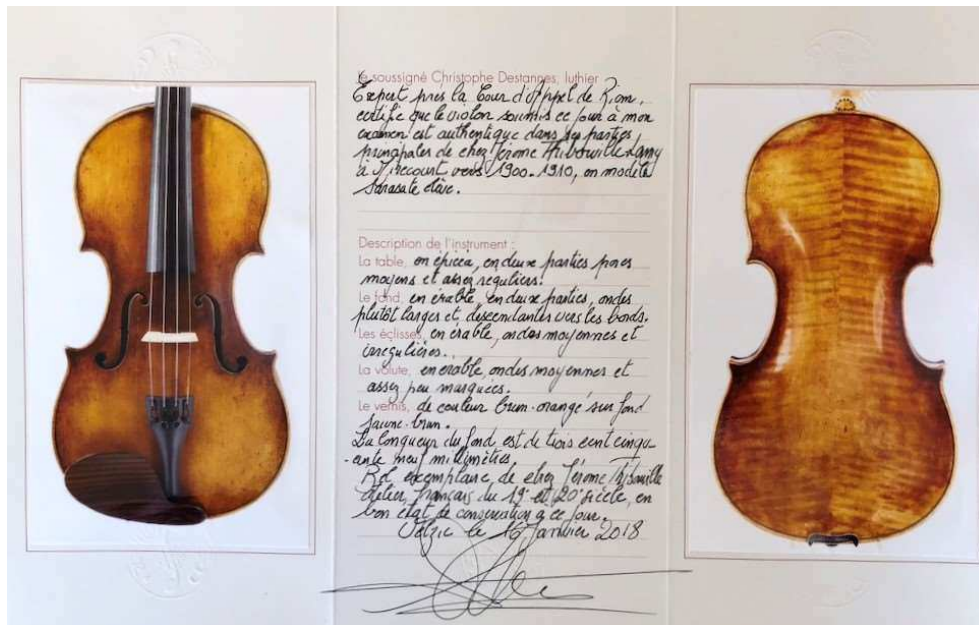 Je soussigné Christophe Destannes, luthier
Expert près la Cour d'Appel de Riom,
certifie que le violon soumis ce jour à mon
examen est authentique dans ses parties
principales de chez Jérome Thibouville-Lamy
à Mirecourt vers 1900-1910, en modèle
Sarasate élève.
Description de l'instrument :
La table, en épicéa, en deux parties, pores
moyens et assez réguliers.
Le fond, en érable, en deux parties, ondes
plutôt larges et descendantes vers les bords.
Les éclisses, en érable, ondes moyennes et
irrégulières.
La volute, en érable, ondes moyennes et
assez peu marquées.
Le vernis, de couleur brun-orangé sur fond
jaune-brun.
La longueur du fond est de trois cent cinqu-
-ante neuf millimètres.
Bel exemplaire, de chez Jérome Thibouville
atelier français du 19e et 20e siècle, en
bon état de conservation à ce jour.
le 16 Janvier 2018